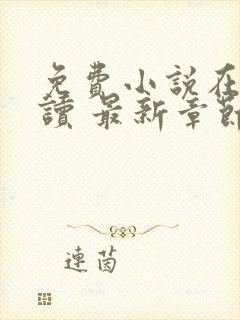 免費小說在
讀 最新章節
連茵